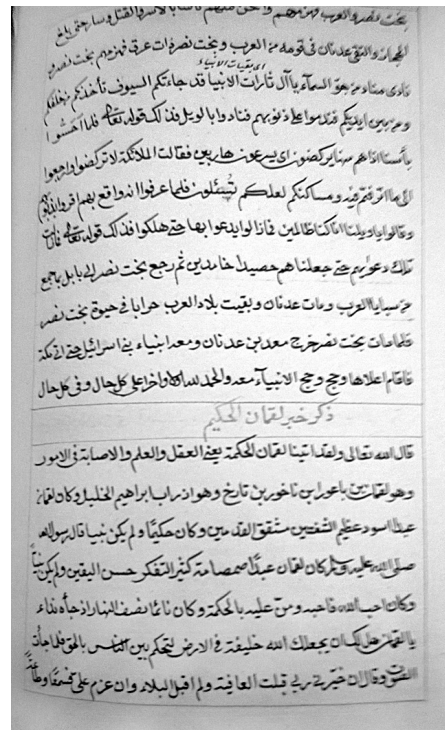 بخت نصر والعرب وهزمهم
الحجاز والتقى عدنان فى قومه من العرب وبخت نصر بذات عرق فهزمهم بخت نصر و
اى بقيات الانبياء
نادى مناد من جو السماء يا آل ثارات الانبيا قد جاءتكم السيوف تأخذكم من خلفكم
ومن بين ايديكم فندموا على ذنوبهم فنادوا بالويل فذلك قوله تعالى فلما احسوا
بأسنا اذا هم منها يركضون اى يسرعون هاربين فقالت الملائكة لا تركضوا وارجعوا
الى ما اترفتم فيه ومساكنكم لعلكم تسئلون فلما عرفوا انه واقع بهم اقروا بذنوبهم
وقالوا يا ويلنا انا كنا ظالمين فما زالوا يدعوا بها حتى هلكوا فذلك قوله تعالى فما زالت
تلك دعواهم حتى جعلناهم حصيدا خامدين ثم رجع بخت نصر الى بابل بما جمع
من سبايا العرب ومات عدنان وبقيت بلاد العرب خرابا فى حيوة بخت نصر
فلما مات بخت نصر خرج معد بن عدنان ومعه انبياء بنى اسرائيل حتى اتى مكة
فاقام اعلامها وحج وحج الانبياء معه والحمد لله اولا واخرا على كل حال وفى كل حال
ذكر خبر لقمان الحكيم
قال الله تعالى ولقد اتينا لقمان الحكمة يعنى العقل والعلم والاصابة فى الامور
وهو لقمان بن باعورا بن ناخور بن تارخ وهو اذر اب ابراهيم الخليل وكان لقمان
عبدا اسود عظيم الشفتين مشقق القدمين وكان حكيما ولم يكن نبيا قال رسول الله
صلى الله عليه وسلم كان لقمان عبدا صمصامة كثير التفكر حسن اليقين ولم يكن نبياً
وكان احب الله فاحبه ومن عليه بالحكمة وكان نائما نصف النهار اذ جاءه نداء
يا لقمان هل لك ان يجعلك الله خليفة فى الارض لتحكم بين الناس بالحق فلما جاءت
الصوت وقال ان خيرنى ربى قبلت العافية ولم اقبل البلاء وان عزم على فسمعا وطاعةً